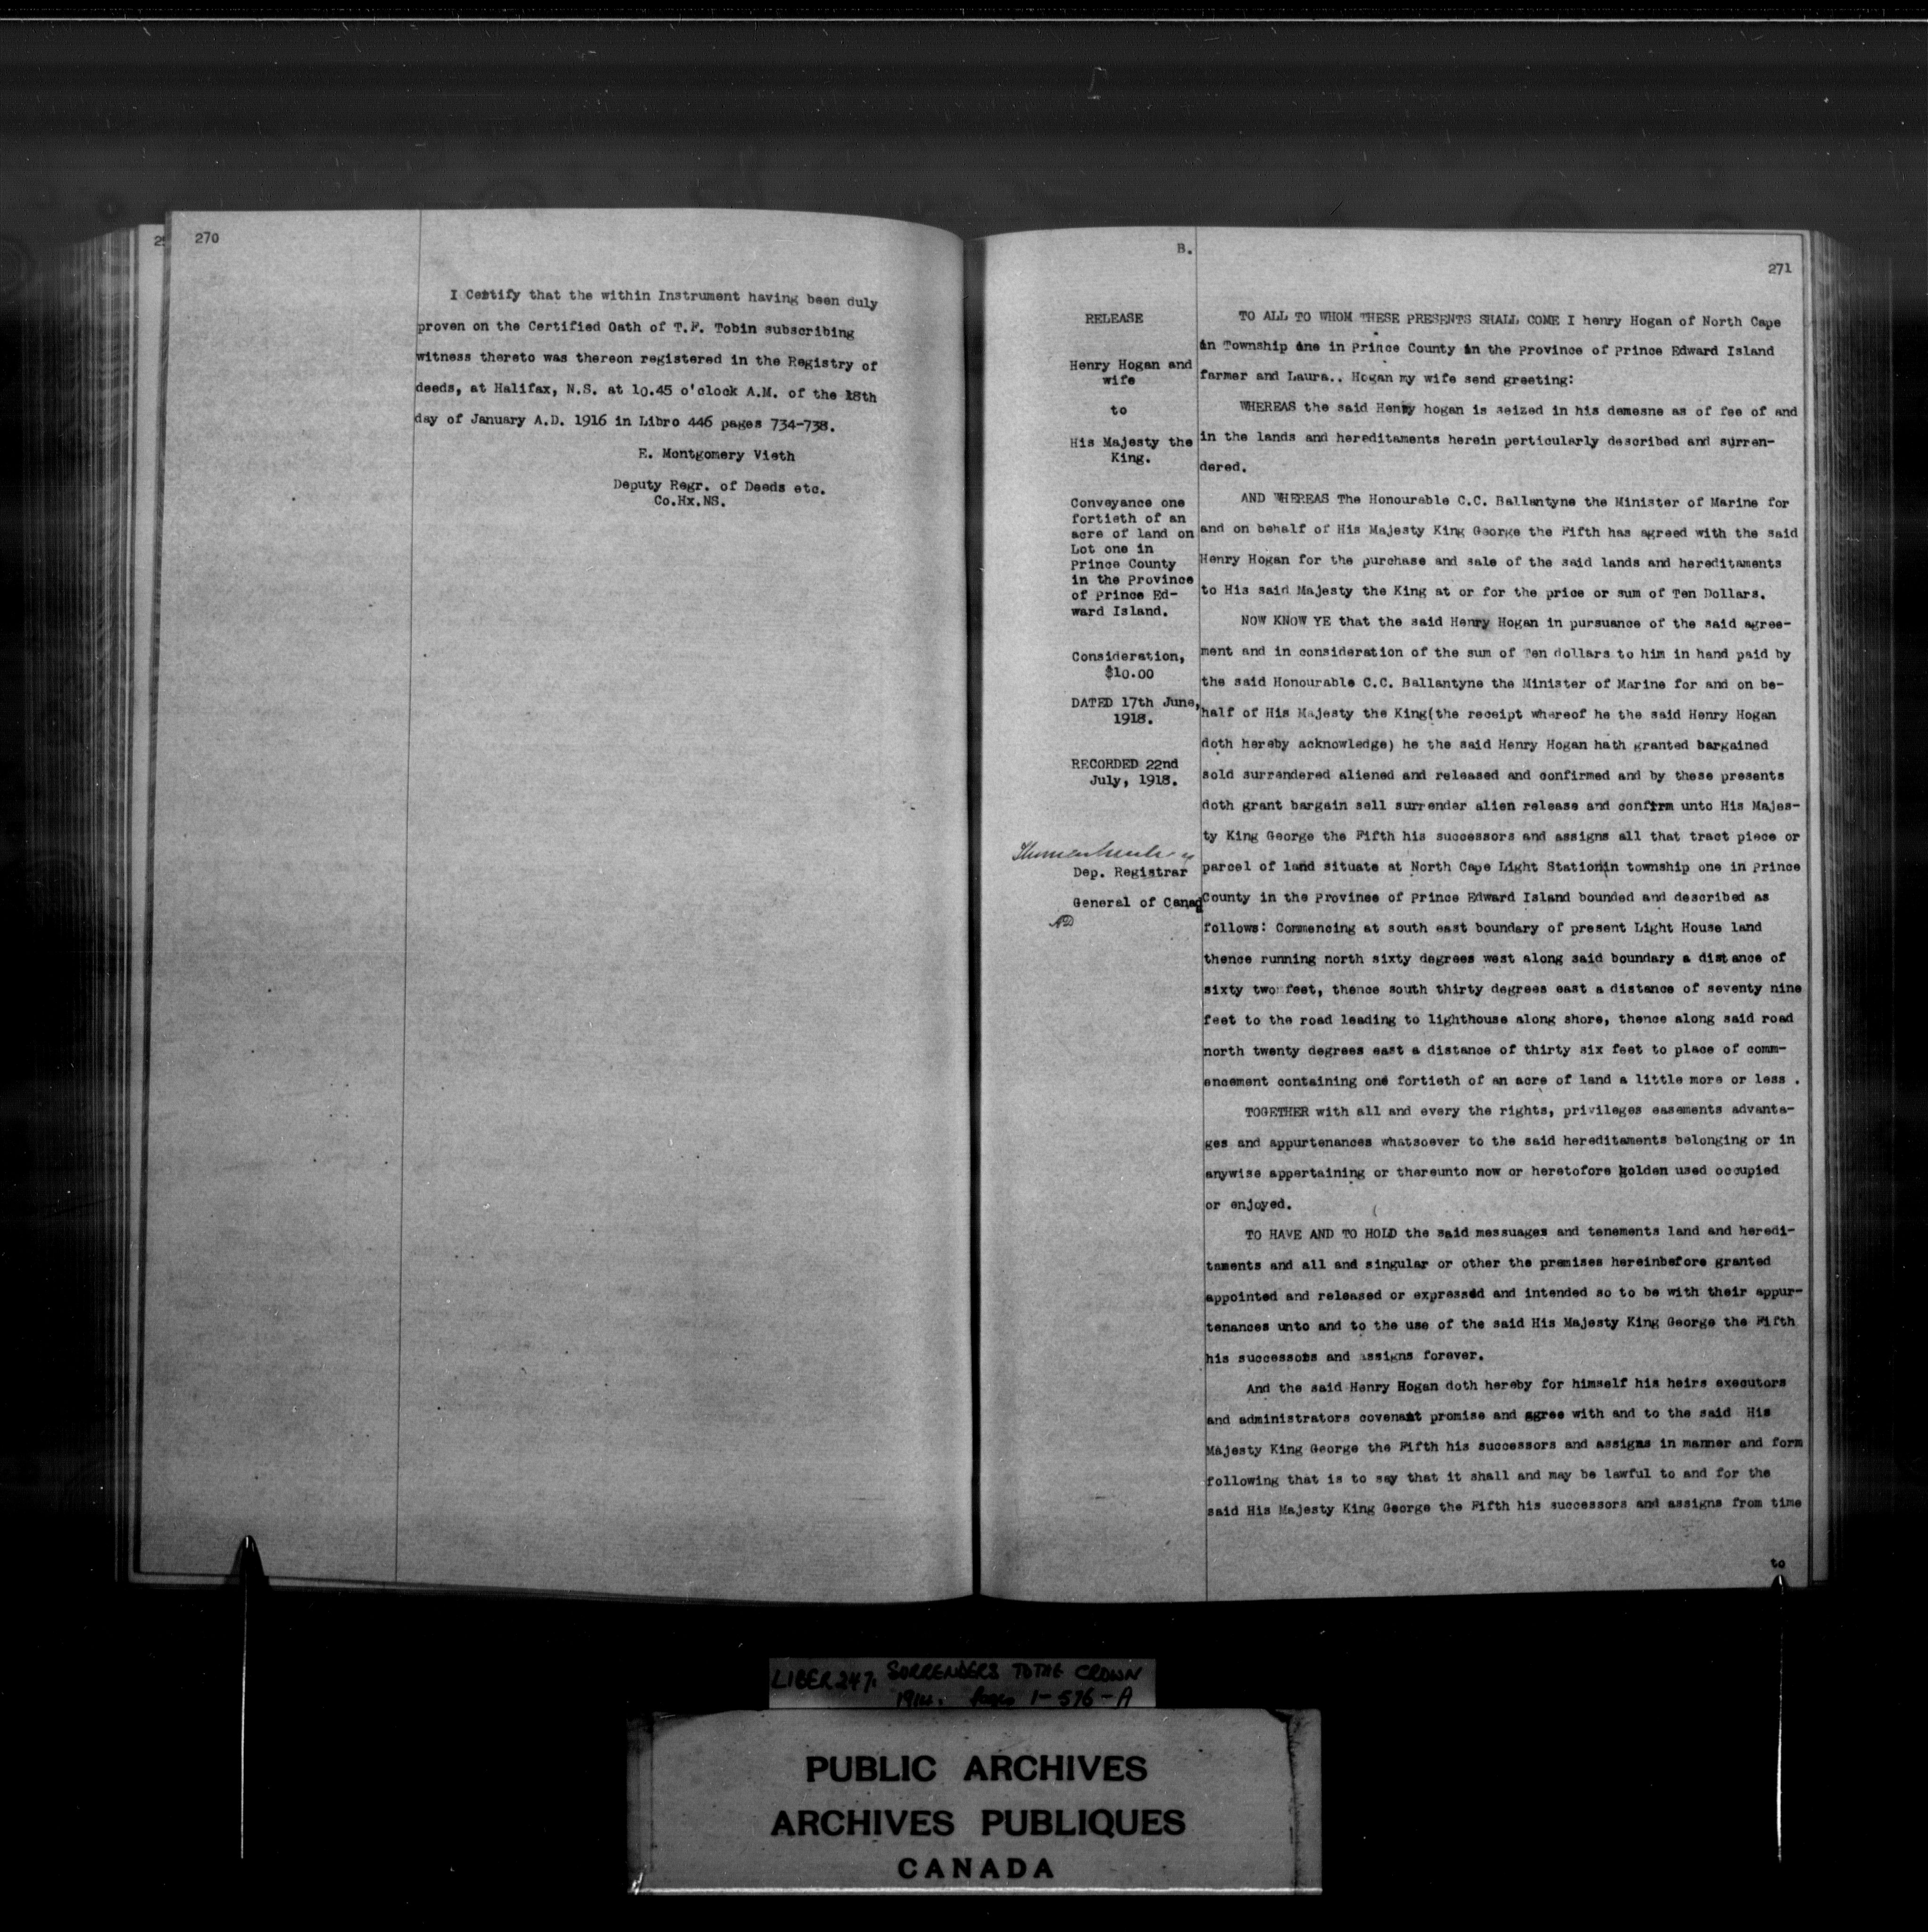 270
I Certify that the within Instrument having been duly
proven on the Certified Oath of T.F. Tobin subscribing
witness thereto was thereon registered in the Registry of
deeds, at Halifax, N.S. at 10.45 o'clock A.M. of the 18th
day of January A.D. 1916 in Libro 446 pages 734-738.
E. Montgomery Vieth
Deputy Regr. of Deeds etc.
Co.Hx.NS.
B.
271
RELEASE
Henry Hogan and
wife
to
His Majesty the
King.
Conveyance one
fortieth of an
acre of land on
Lot one in
Prince County
in the Province
of Prince Ed-
ward Island.
Consideration,
$10.00
DATED 17th June,
1918.
RECORDED 22nd
July, 1918.
Dep. Registrar
General of Canad
TO ALL TO WHOM THESE PRESENTS SHALL COME I henry Hogan of North Cape
in Township one in Prince County in the Province of Prince Edward Island
farmer and Laura.. Hogan my wife send greeting:
WHEREAS the said Henry hogan is seized in his demesne as of fee of and
in the lands and hereditaments herein perticularly described and surren-
dered.
AND WHEREAS The Honourable C.C. Ballantyne the Minister of Marine for
and on behalf of His Majesty King George the Fifth has agreed with the said
Henry Hogan for the purchase and sale of the said lands and hereditaments
to His said Majesty the King at or for the price or sum of Ten Dollars.
NOW KNOW YE that the said Henry Hogan in pursuance of the said agree-
ment and in consideration of the sum of Ten dollars to him in hand paid by
the said Honourable C.C. Ballantyne the Minister of Marine for and on be-
half of His Majesty the King(the receipt whereof he the said Henry Hogan
doth hereby acknowledge) he the said Henry Hogan hath granted bargained
sold surrendered aliened and released and confirmed and by these presents
doth grant bargain sell surrender alien release and confirm unto His Majes-
ty King George the Fifth his successors and assigns all that tract piece or
parcel of land situate at North Cape Light Stationin township one in Prince
County in the Province of Prince Edward Island bounded and described as
follows: Commencing at south east boundary of present Light House land
thence running north sixty degrees west along said boundary a distance of
sixty two feet, thence south thirty degrees east a distance of seventy nine
feet to the road leading to lighthouse along shore, thence along said road
north twenty degrees east a distance of thirty six feet to place of comm-
encement containing one fortieth of an acre of land a little more or less .
TOGETHER with all and every the rights, privileges easements advanta-
ges and appurtenances whatsoever to the said hereditaments belonging or in
anywise appertaining or thereunto now or heretofore holden used occupied
or enjoyed.
TO HAVE AND TO HOLD the said messuages and tenements land and heredi-
taments and all and singular or other the premises hereinbefore granted
appointed and released or expressed and intended so to be with their appur-
tenances unto and to the use of the said His Majesty King George the Fifth
his successors and assigns forever.
And the said Henry Hogan doth hereby for himself his heirs executors
and administrators covenant promise and agree with and to the said His
Majesty King George the Fifth his successors and assigns in manner and form
following that is to say that it shall and may be lawful to and for the
said His Majesty King George the Fifth his successors and assigns from time
to
LIBER 247. SURRENDERS TO THE CROWN
1914. Pages 1-576-A
PUBLIC ARCHIVES
ARCHIVES PUBLIQUES
CANADA